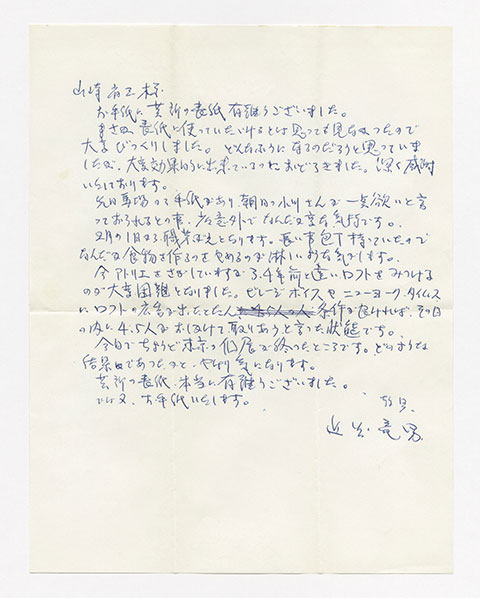 山崎省三様
お手紙と芸新の表紙有難うございました。
まさか表紙に使っていただけるとは思っても見なかったので
大変びっくりしました。どんなふうになるのだろうと思っていま
したが、大変効果的に出来ているのにおどろきました。深く感謝
いたしております。
先日馬場さんの手紙があり朝日の小川さんが一点欲いと言
っておられるとの事、
2月の1日より職業
なんだか食物を作るのをやめるのが淋しいような気がします。
今アトリエをさがしていますが3.4年前と違いロフトをみつける
のが大変困難となりました。ビレージボイスやニューヨーク・タイムス
にロフトの広告が出たとたん条件が良ければ、その日
の内に4.5人がおしかけて取りあうと言った状態です。
今日でちょうど東京の個展が終ったところです。どのような
結果であったかと、やはり気になります。
芸新の表紙、本当に有難うございました。
ではまた、お手紙いたします。
敬具
近藤竜男